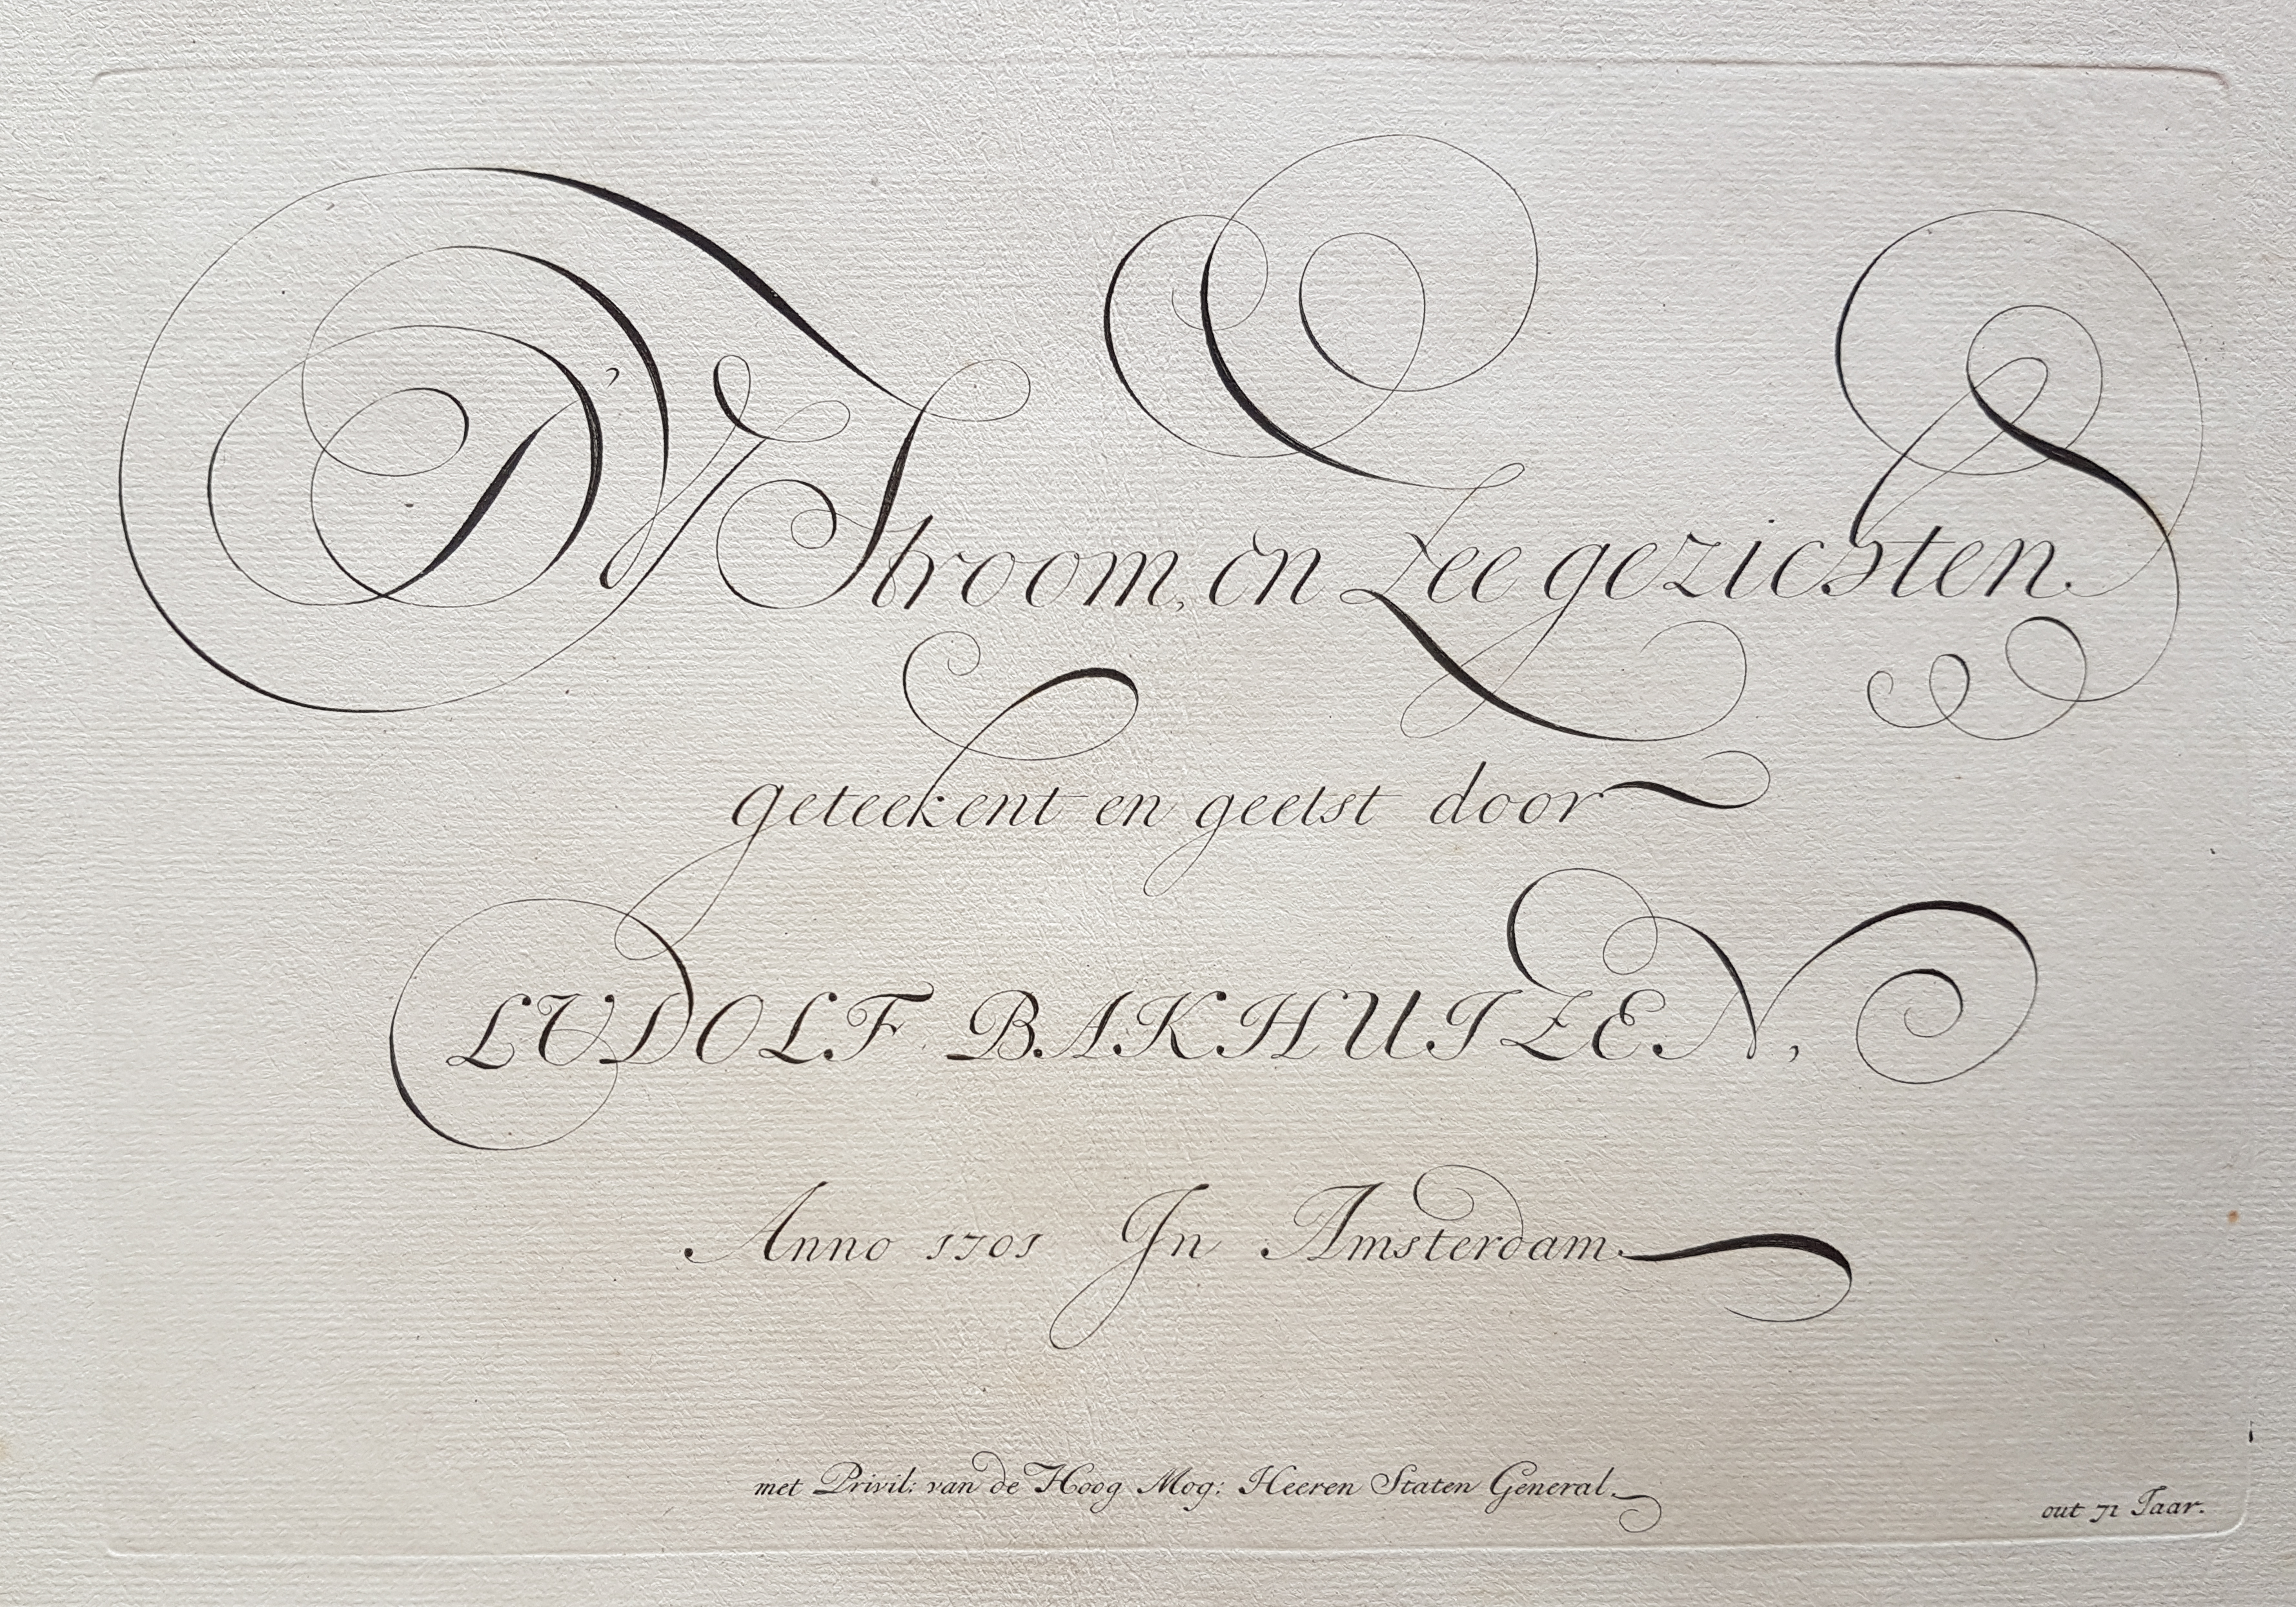 D'Y Stroom, en Zee gezichten.
geteekent en geetst door
LUDOLF BAKHUIZEN,
Anno 1701 In Amsterdam.
met Privil: van de Hoog Mog: Heeren Staten General.
out 71 Iaar.